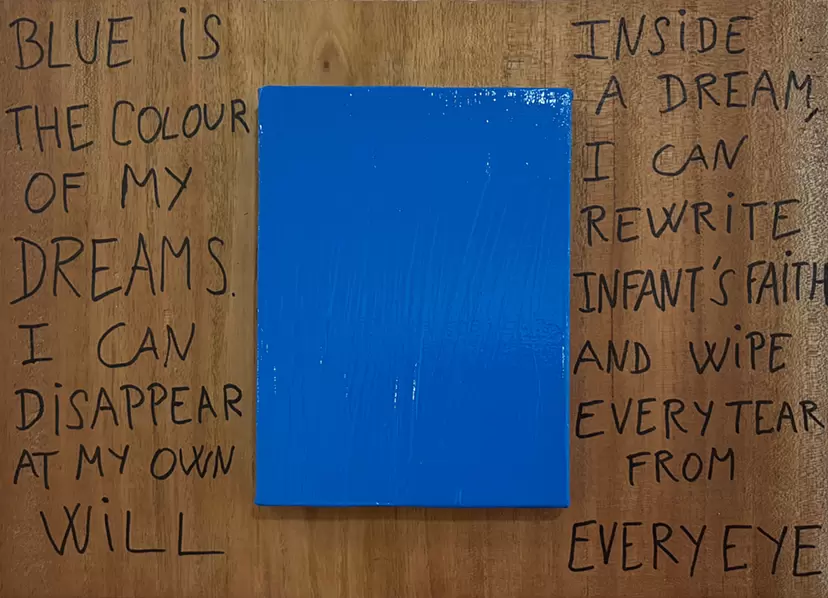 BLUE iS
THE COLOUR
OF MY
DREAMS.
I CAN
DiSAPPEAR
AT MY OWN
WiLL
INSiDE
A DREAM,
I CAN
REWRiTE
INFANT'S FAiTH
AND WiPE
EVERY TEAR
FROM
EVERY EYE